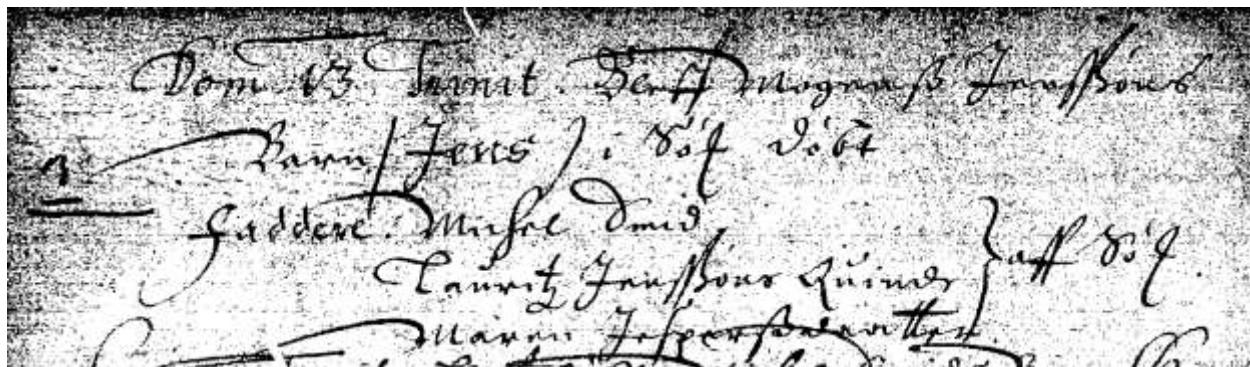 Dom 13 Trinit. Bleff Mogenß Jenssøns
Barn (Jens) i Søf døbt
Faddere. Michel Smid
Lauritz Jenssøns Quinde } aff Søf.
Maren Jespersdaatter